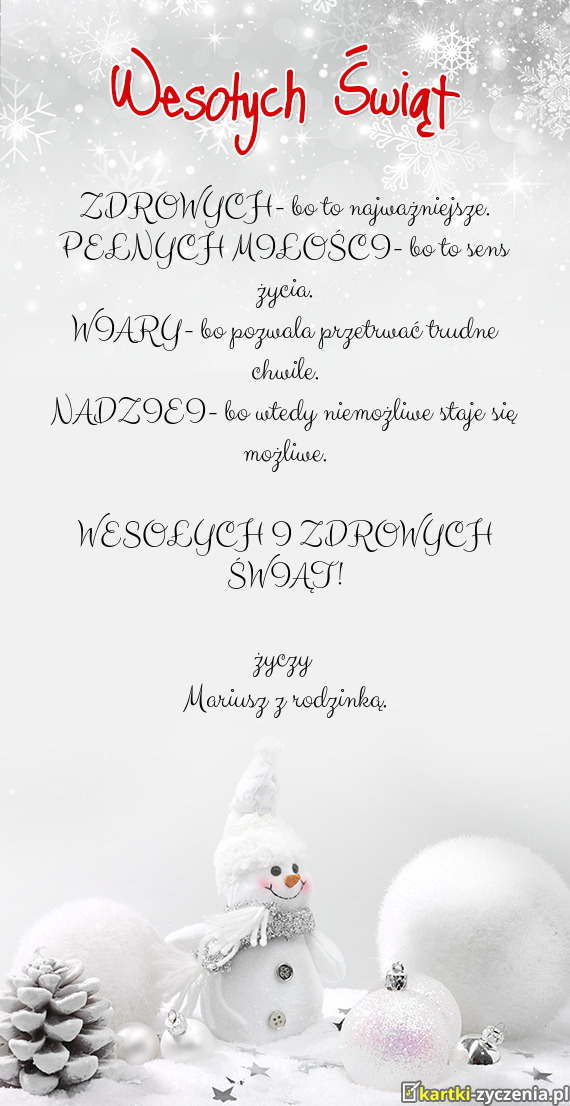 Wesołych Świąt
ZDROWYCH- bo to najważniejsze.
PEŁNYCH MIŁOŚCI- bo to sens
życia.
WIARY- bo pozwala przetrwać trudne
chwile.
NADZIEI- bo wtedy niemożliwe staje się
możliwe.
WESOŁYCH I ZDROWYCH
ŚWIĄT!
życzy
Mariusz z rodzinką.
kartki-zyczenia.pl